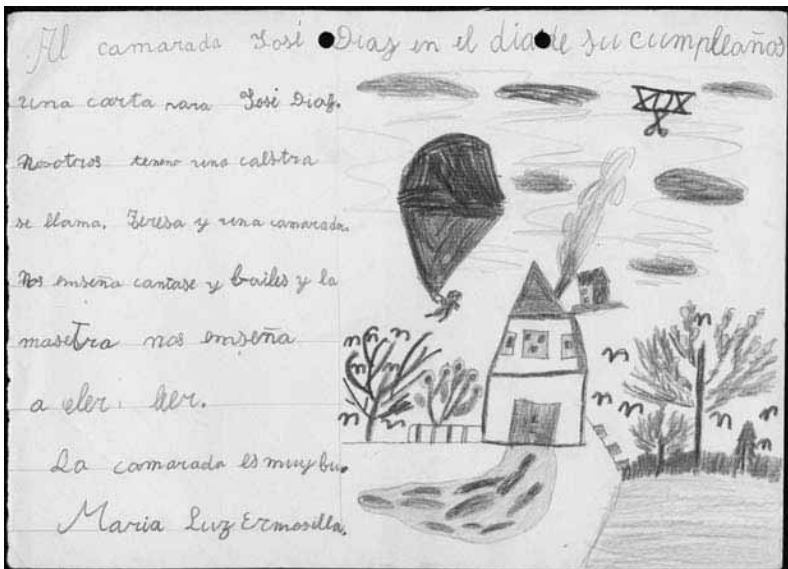 Al camarada José Dias en el dia de su cumpleaños
una carta para José Dias.
Nosotros teneno una calstra
se llama. Teresa y una camarada.
Nos enseña cantase y bailes y la
masetra nos enseña
a eler. ler.
La camarada es muy bu.
Maria Luz Ermosilla.